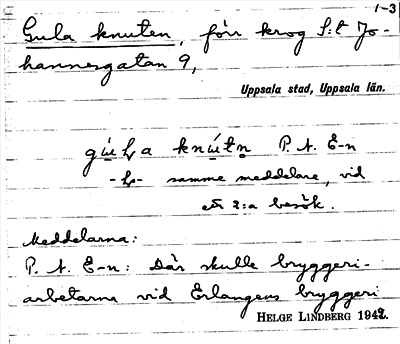 1-3
Gula knuten, förr krog S:t Jo-
hannesgatan 9,
Uppsala stad, Uppsala län.
gu̇La knu̇tn̥ P. A. E-n
-L- samme meddelare, vid
ett 2:a besök.
Meddelarna:
P. A. E-n: Där skulle bryggeri-
arbetarna vid Erlangens bryggeri
HELGE LINDBERG 1942.